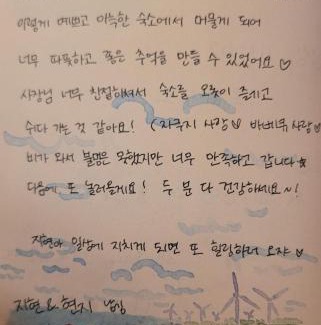 이렇게 예쁘고 아늑한 숙소에서 머물게 되어
너무 따뜻하고 좋은 추억을 만들 수 있었어요♡
사장님 너무 친절하셔서 숙소를 오롯이 즐기고
쉬다 가는 것 같아요! (자쿠지 사랑♡ 바베큐 사랑♡
비가 와서 불멍은 못했지만 너무 만족하고 갑니다☆
다음에 또 놀러올게요! 두 분 다 건강하세요~!
지현아 일상에 지치게 되면 또 힐링하러 오자♡
지현&현지 남김